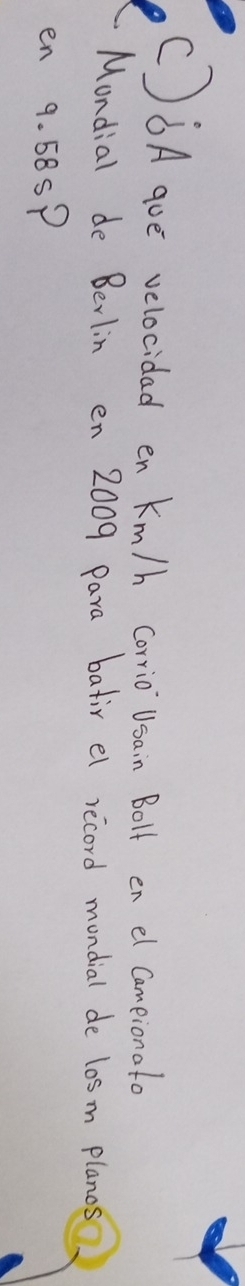 C) ¿A qué velocidad en km/h corrió Usain Bolt en el Campionato
Mundial de Berlin en 2009 para batir el récord mundial de los m planos
en 9.58s?